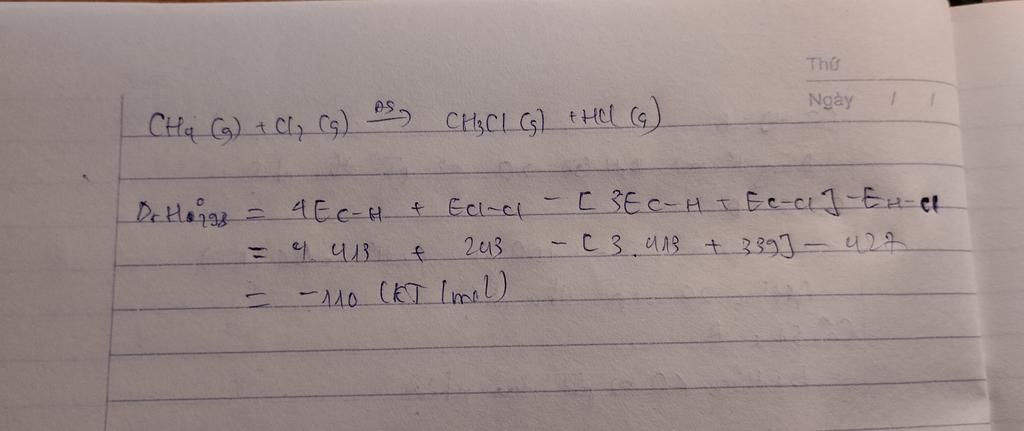 Thứ
Ngày / /
CH4 (g) + Cl2 (g) —AS→ CH3Cl (g) + HCl (g)
ΔrH°298 = 4EC-H + ECl-Cl - [3EC-H + EC-Cl] - EH-Cl
= 4. 413 + 243 - [3. 413 + 339] - 427
= -110 (kJ/mol)